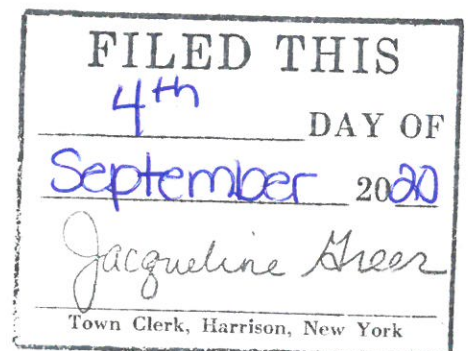 FILED THIS
4th DAY OF
September 2020
Jacqueline Greer
Town Clerk, Harrison, New York